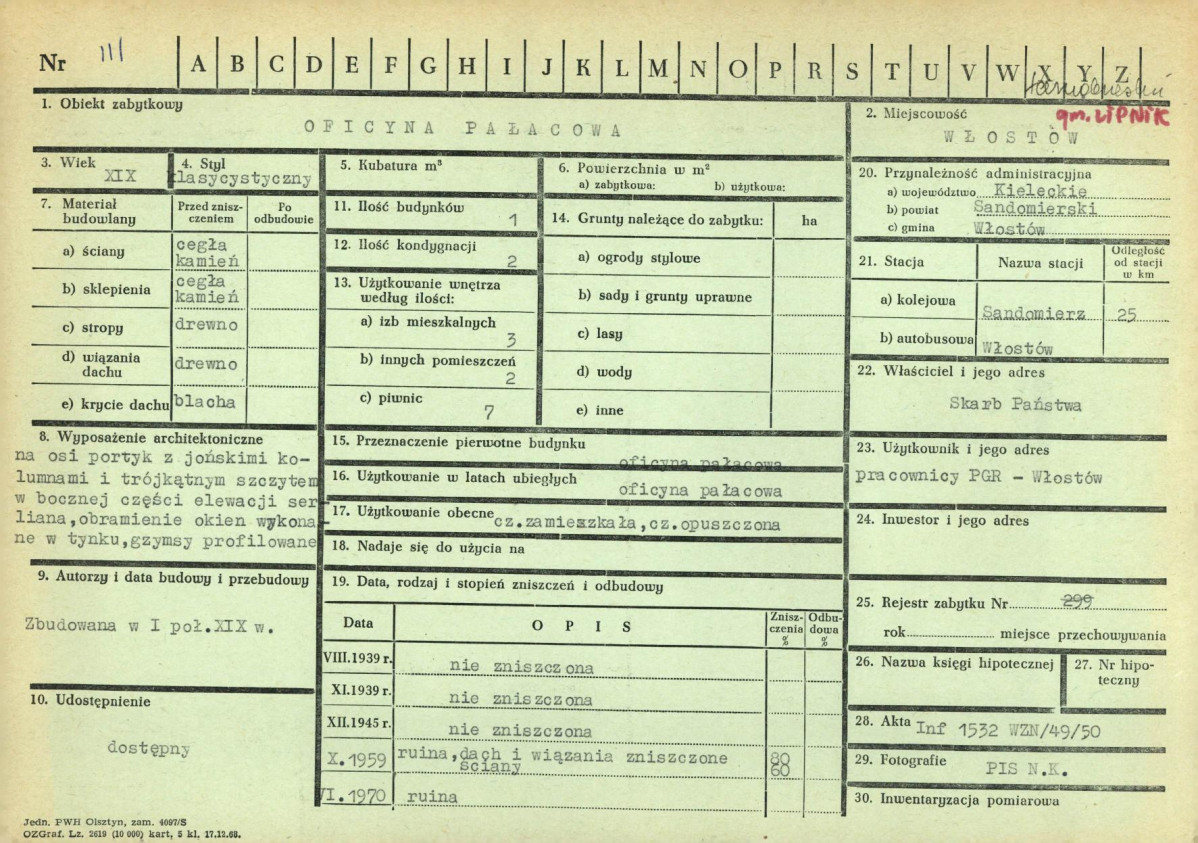 Nr III A B C D E F G H I J K L M N O P R S T U V W X Y Z
1. Obiekt zabytkowy
OFICYNA PAŁACOWA
2. Miejscowość
gm. LIPNIK
WŁOSTÓW
3. Wiek
XIX
4. Styl
klasycystyczny
5. Kubatura m³
6. Powierzchnia w m²
a) zabytkowa: b) użytkowa:
20. Przynależność administracyjna
a) województwo Kieleckie
b) powiat Sandomierski
c) gmina Włostów
7. Materiał budowlany
Przed znisz-
czeniem
Po
odbudowie
a) ściany
cegła
kamień
b) sklepienia
cegła
kamień
c) stropy drewno
d) wiązania
dachu
drewno
e) krycie dachu blacha
11. Ilość budynków
1
12. Ilość kondygnacji
2
13. Użytkowanie wnętrza
według ilości:
a) izb mieszkalnych
3
b) innych pomieszczeń
2
c) piwnic
7
14. Grunty należące do zabytku: ha
a) ogrody stylowe
b) sady i grunty uprawne
c) lasy
d) wody
e) inne
21. Stacja Nazwa stacji
Odległość
od stacji
w km
a) kolejowa
Sandomierz 25
b) autobusowa
Włostów
22. Właściciel i jego adres
Skarb Państwa
8. Wyposażenie architektoniczne
na osi portyk z jońskimi ko-
lumnami i trójkątnym szczytem
w bocznej części elewacji ser-
liana,obramienie okien wykona-
ne w tynku,gzymsy profilowane
15. Przeznaczenie pierwotne budynku
oficyna pałacowa
16. Użytkowanie w latach ubiegłych
oficyna pałacowa
17. Użytkowanie obecne cz.zamieszkała,cz.opuszczona
18. Nadaje się do użycia na
23. Użytkownik i jego adres
pracownicy PGR - Włostów
24. Inwestor i jego adres
9. Autorzy i data budowy i przebudowy
Zbudowana w I poł.XIX w.
10. Udostępnienie
dostępny
19. Data, rodzaj i stopień zniszczeń i odbudowy
Data OPIS
Znisz-
czenia
%
Odbu-
dowa
%
VIII.1939 r. nie zniszczona
XI.1939 r. nie zniszczona
XII.1945 r. nie zniszczona
X.1959 ruina,dach i wiązania zniszczone 80
ściany 60
VI.1970 ruina
25. Rejestr zabytku Nr 299
rok miejsce przechowywania
26. Nazwa księgi hipotecznej
27. Nr hipo-
teczny
28. Akta Inf 1532 WZN/49/50
29. Fotografie PIS N.K.
30. Inwentaryzacja pomiarowa
Jedn. PWH Olsztyn, zam. 4097/S
OZGraf. Lz. 2619 (10 000) kart, 5 kl. 17.12.68.